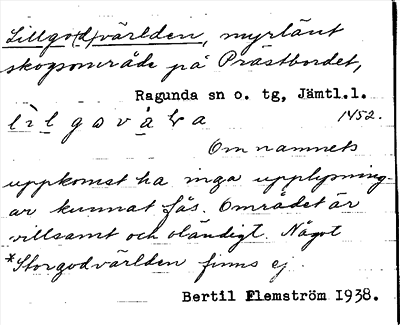 Lillgo(d)världen, myrlänt
skogsområde på Prästbordet,
Ragunda sn o. tg, Jämtl.l.
1452.
Om namnets
uppkomst ha inga upplysning-
ar kunnat fås. Området är
villsamt och oländigt. Något
*Storgodvärlden finns ej.
Bertil Flemström 1938.